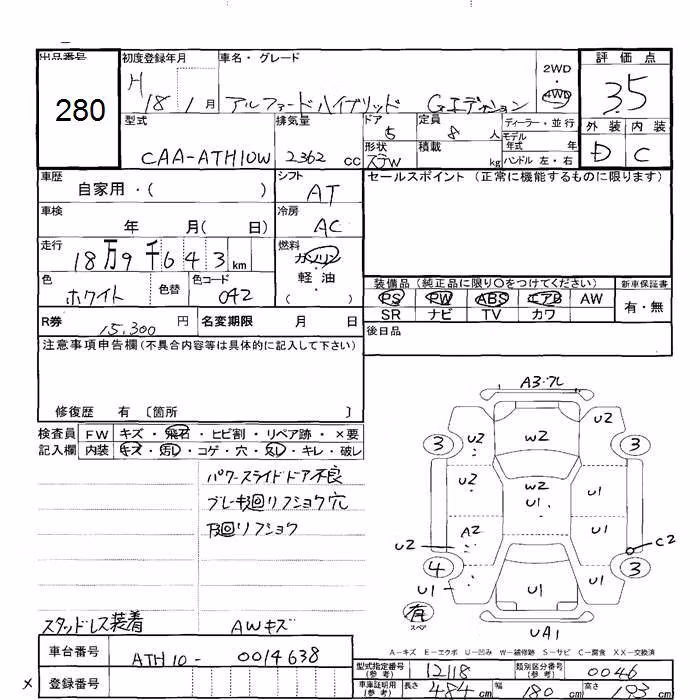 出品番号 初度登録年月 車名・グレード 評価点
280 H 18 1月 アルファードハイブリッド Gエディション 2WD 4WD 35
型式 排気量 ドア 定員 ディーラー・並行 外装 内装
CAA-ATH10W 2362 cc 5 8 人 モデル年式 年 D C
形状 ステW 積載 kg ハンドル 左・右
車歴 自家用・( ) シフト AT セールスポイント (正常に機能するものに限ります)
車検 年 月( 日) 冷房 AC
走行 18万9千643km 燃料 ガソリン・軽油・( )
色 ホワイト 色替 色コード 042
装備品 (純正品に限り○をつけてください) 新車保証書
PS PW ABS エアB AW 有・無
SR ナビ TV カワ
R券 15,300 円 名変期限 月 日 後日品
注意事項申告欄(不具合内容等は具体的に記入して下さい)
修復歴 有 〔箇所 〕
検査員 FW キズ・飛石・ヒビ割・リペア跡・×要
記入欄 内装 キズ・汚レ・コゲ・穴・欠レ・キレ・破レ
パワースライドドア不良
ブレーキ回リフショク穴
下回リフショク
スタッドレス装着 AWキズ
A3・フレ
U2 W2 U2
3 3
U2 W2 U1 U1
A2 U1
U2 C2
4 3
U1 U1 U1
有 スペア
UA1
A-キズ E-エクボ U-凹み W-補修跡 S-サビ C-腐食 XX-交換済
車台番号 ATH10-0014638
型式指定番号(参考) 12118 類別区分番号(参考) 0046
登録番号
車庫証明用(参考) 長さ 484 cm 幅 180 cm 高さ 193 cm